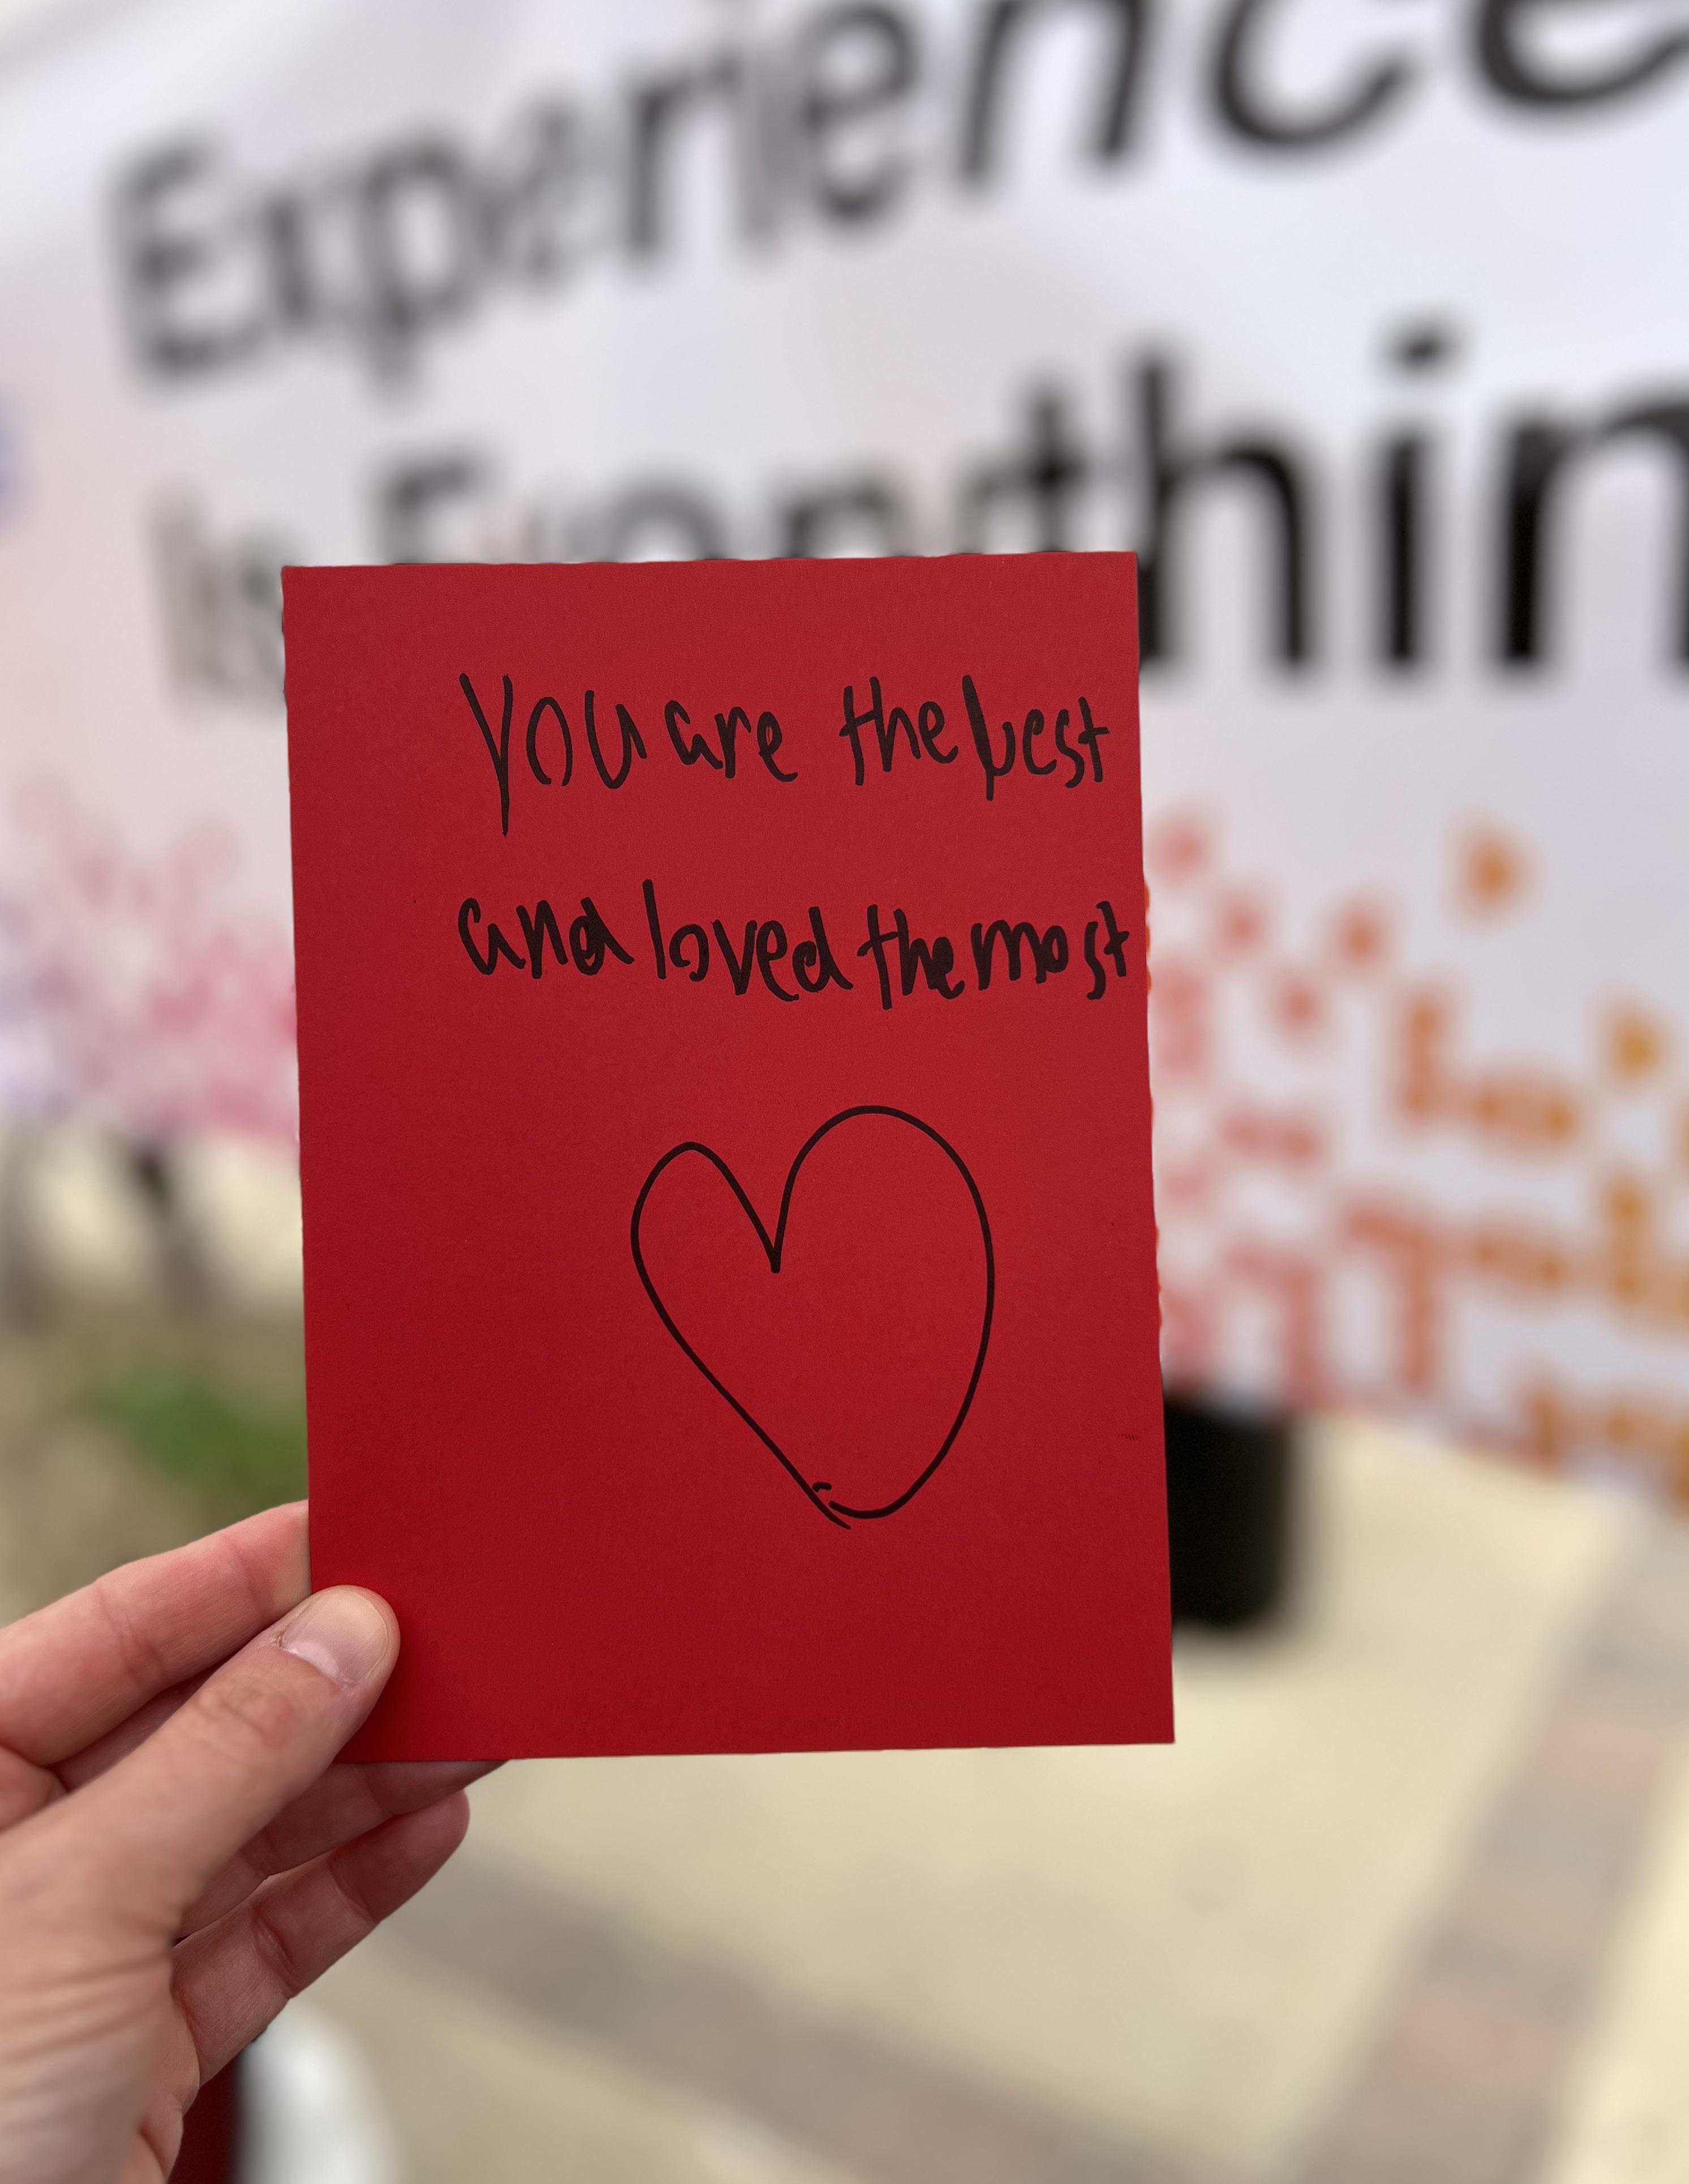 Experience
Is Everythin
You are the best
and loved the most